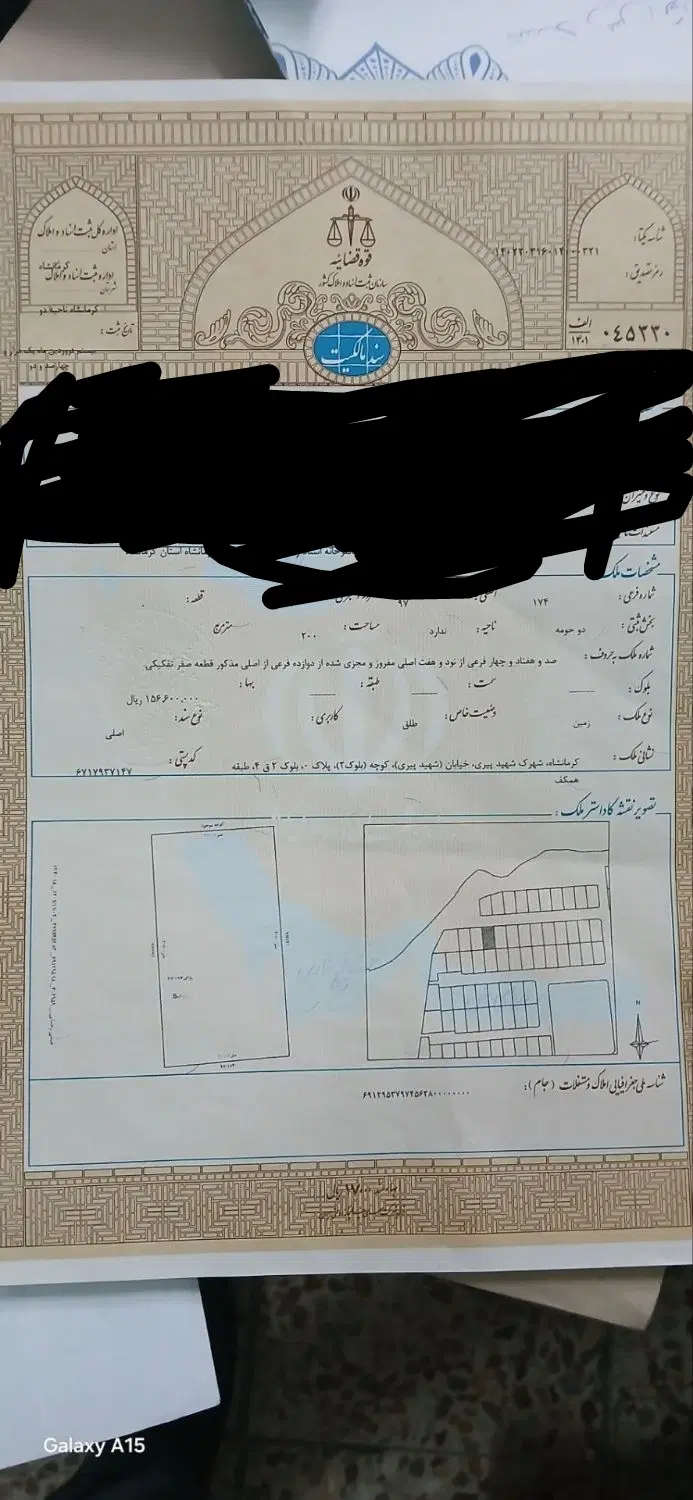 قوه قضائیه
سازمان ثبت اسناد و املاک کشور
اداره کل ثبت اسناد و املاک
استان
کرمانشاه
اداره ثبت اسناد و املاک
شهرستان
کرمانشاه ناحیه دو
تاریخ ثبت :
بیستم فروردین ماه یک هزار و
چهارصد و دو
شناسه یکتا :
رمز تصدیق :
الف
۱۴۰۱
۰۴۵۲۳۰
سند مالکیت
مشخصات ملک
شماره فرعی : ۱۷۴ اصلی : ۹۷ قطعه : ۰
بخش ثبتی : دو حومه ناحیه : ندارد مساحت : ۲۰۰ مترمربع
شماره ملک به حروف : صد و هفتاد و چهار فرعی از نود و هفت اصلی مفروز و مجزی شده از دوازده فرعی از اصلی مذکور قطعه صفر تفکیکی
بلوک : سمت : طبقه : بها : ۱۵۶,۶۰۰,۰۰۰ ریال
نوع ملک : زمین وضعیت خاص : طلق کاربری : نوع سند : اصلی
نشانی ملک : کرمانشاه، شهرک شهید پیری، خیابان (شهید پیری)، کوچه (بلوک۲)، پلاک ۰، بلوک ۲ ق ۴، طبقه
همکف
کد پستی : ۶۷۱۷۹۳۷۱۴۷
تصویر نقشه کاداستر ملک :
N
شناسه ملی جغرافیایی املاک و مستغلات ( جام ) :
Galaxy A15